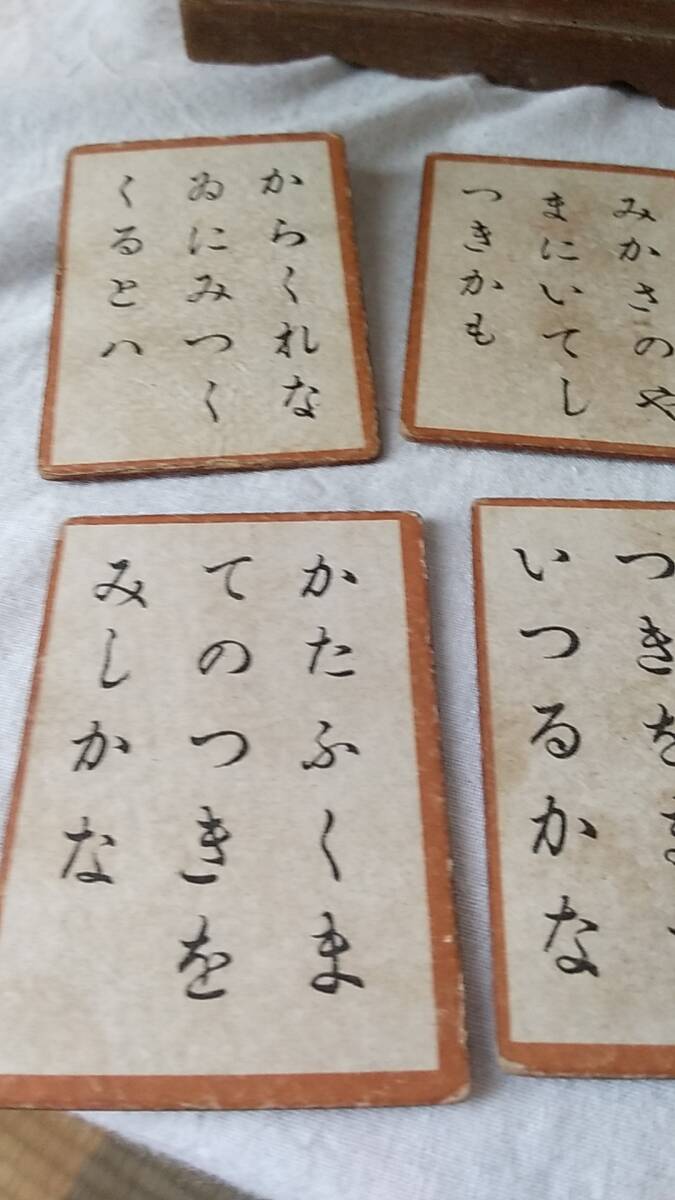 からくれな
ゐにみつく
くるとハ
みかさのや
まにいてし
つきかも
かたふくま
てのつきを
みしかな
つきを
いつるかな